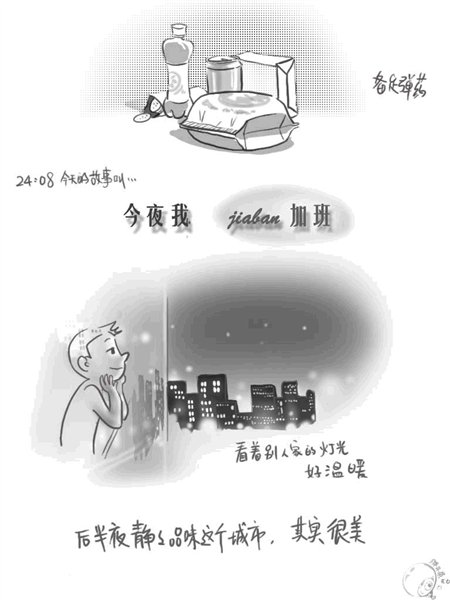 备足弹药
24:08 今天的故事叫…
今夜我 jiaban 加班
看着别人家的灯光
好温暖
后半夜静静品味这个城市，其实很美